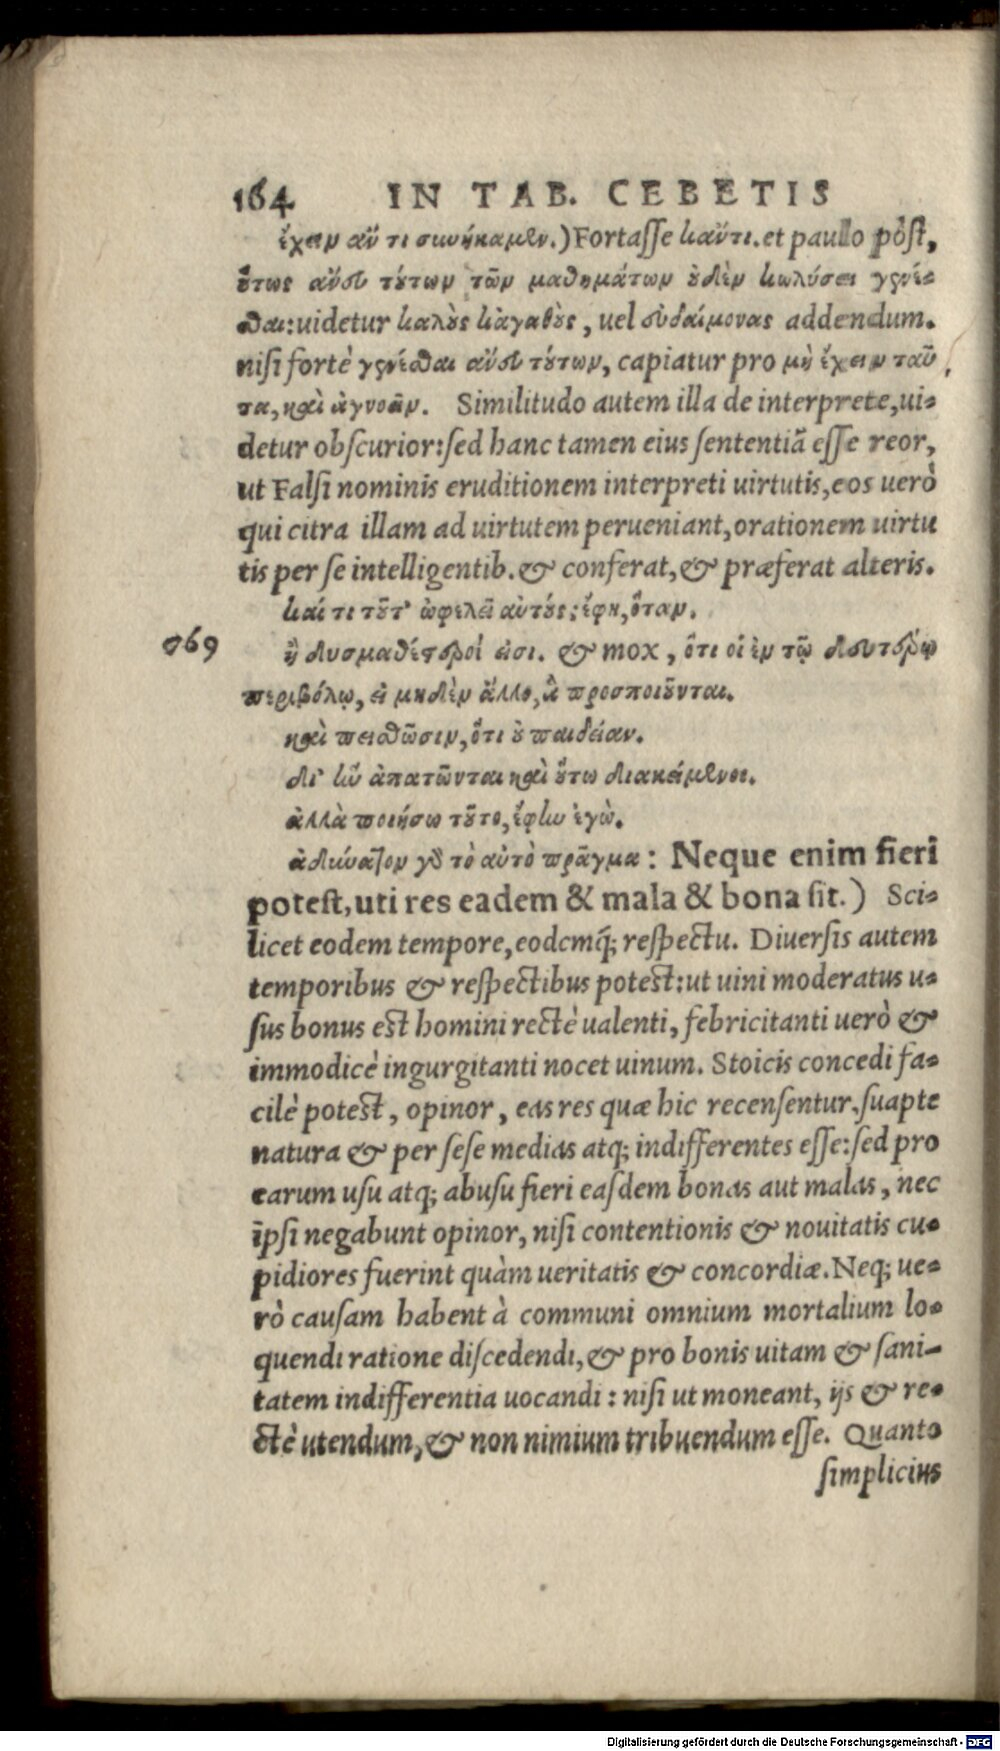 164 IN TAB. CEBETIS
ἔχειν ἄν τι συνήκαμεν.) Fortaſſe κἄντι. et paulo pòſt,
ὅτως ἄνευ τύτων τῶν μαθημάτων ὐδὲν κωλύσει γενέ-
σθαι: uidetur καλὺς κἀγαθὺς, uel εὐδαίμονας addendum.
niſi fortè γενέσθαι ἄνευ τύτων, capiatur pro μὴ ἔχειν ταῦ
τα, καὶ ἀγνοεῖν. Similitudo autem illa de interprete, ui-
detur obſcurior: ſed hanc tamen eius ſententiā eſſe reor,
ut Falſi nominis eruditionem interpreti uirtutis, eos uerò
qui citra illam ad uirtutem perueniant, orationem uirtu
tis per ſe intelligentib. & conferat, & præferat alteris.
καί τι τῦτ' ὠφελεῖ αὐτύς; ἔφη, ὅταν.
969 ἢ δυσμαθέστεροί εἰσι. & mox, ὅτι οἱ ἐν τῷ δευτέρῳ
περιβόλῳ, εἰ μηδὲν ἄλλο, ἃ προσποιῦνται.
καὶ πεισθῶσιν, ὅτι ὐ παιδείαν.
δι' ἣν ἀπατῶνται καὶ ὕτω διακείμενοι.
ἀλλὰ ποιήσω τῦτο, ἔφην ἐγὼ.
ἀδύνατον γὰρ τὸ αὐτὸ πρᾶγμα: Neque enim fieri
poteſt, uti res eadem & mala & bona ſit.) Sci-
licet eodem tempore, eodemq́; reſpectu. Diuerſis autem
temporibus & reſpectibus poteſt: ut uini moderatus u-
ſus bonus eſt homini rectè ualenti, febricitanti uerò &
immodicè ingurgitanti nocet uinum. Stoicis concedi fa-
cilè poteſt, opinor, eas res quæ hic recenſentur, ſuapte
natura & per ſeſe medias atq; indifferentes eſſe: ſed pro
earum uſu atq; abuſu fieri eaſdem bonas aut malas, nec
ipſi negabunt opinor, niſi contentionis & nouitatis cu-
pidiores fuerint quàm ueritatis & concordiæ. Neq; ue-
rò cauſam habent à communi omnium mortalium lo-
quendi ratione diſcedendi, & pro bonis uitam & ſani-
tatem indifferentia uocandi: niſi ut moneant, ijs & re-
ctè utendum, & non nimium tribuendum eſſe. Quanto
ſimplicius
Digitalisierung gefördert durch die Deutsche Forschungsgemeinschaft - DFG